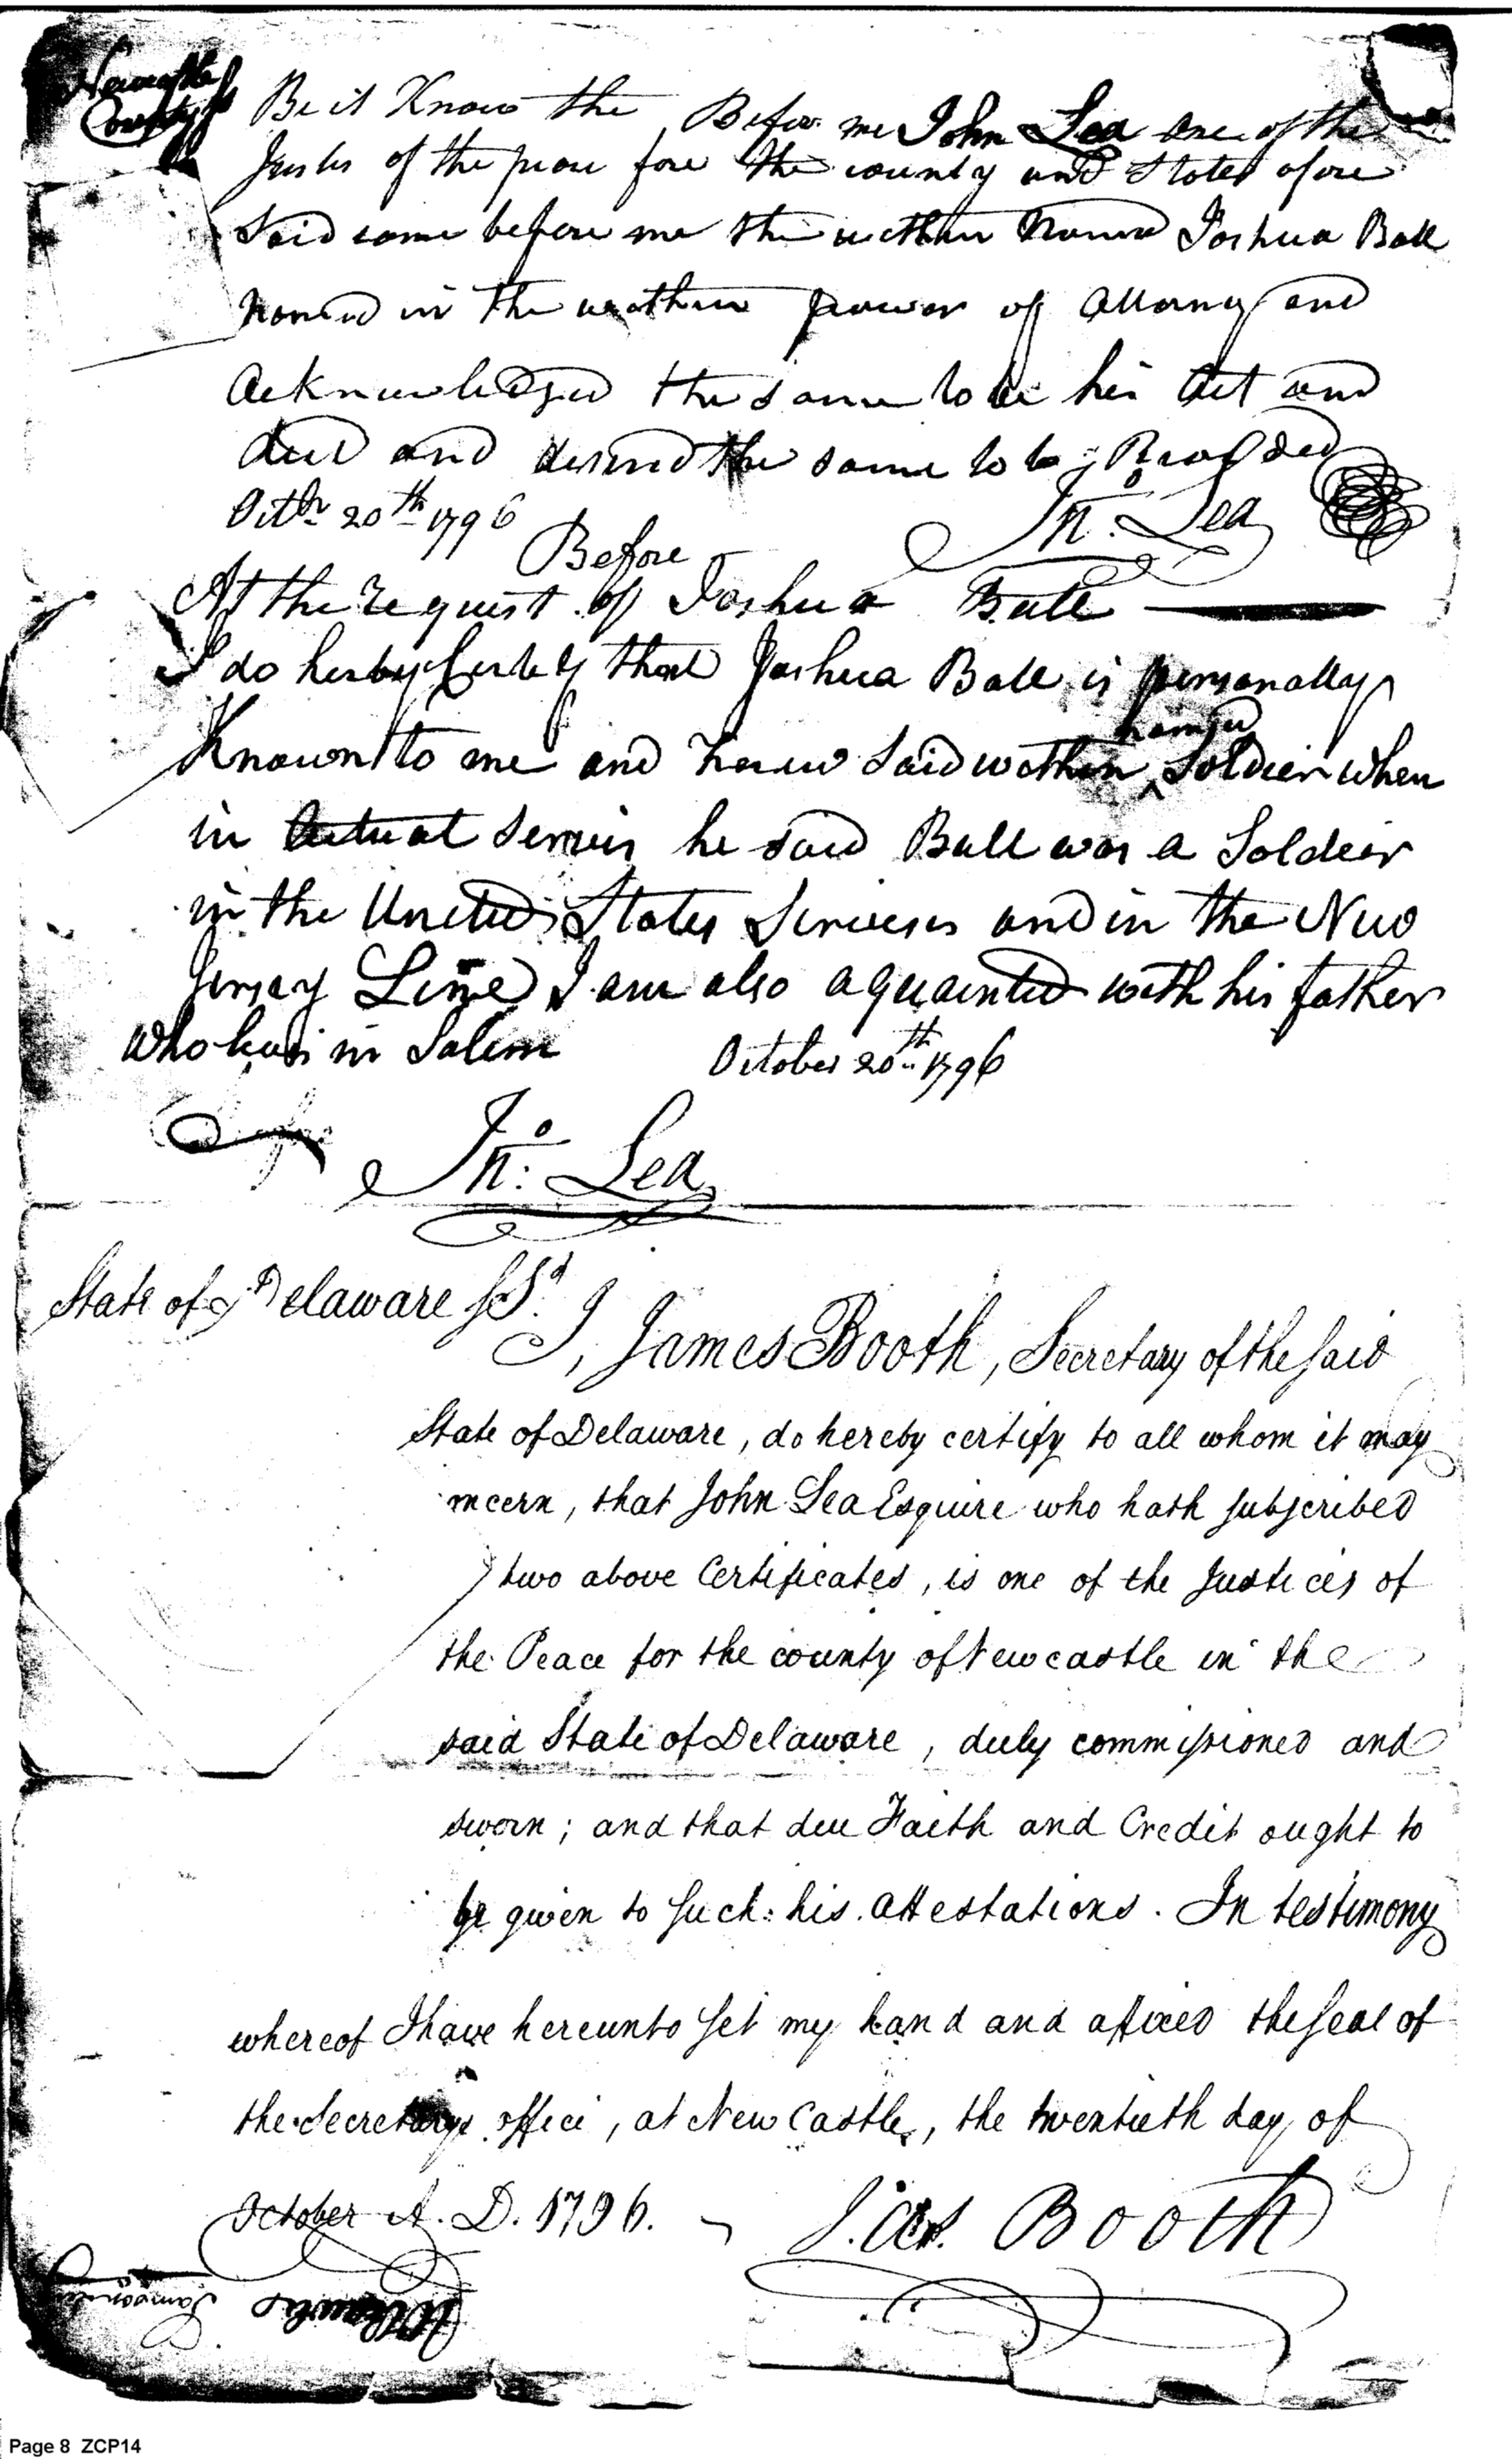 Newcastle
County ss
Be it Know the Before me John Lea one of the
Justes of the peace fore the county and States afore
Said came before me the within Named Joshua Ball
Named in the within power of Attorny and
Acknowledged the same to be his Act and
deed and desired the same to be Recorded
Octbr 20th 1796
Before
Jno. Lea
At the request of Joshua Ball
I do herby Certefy that Joshua Ball is personally
named
Known to me and knew Said within ^ Soldier when
in Actual Servis he said Ball was a Soldier
in the United States Servises and in the New
Jersey Line I am also aquainted with his father
who lives in Salem October 20th 1796
Jno. Lea
State of Delaware ss.
I, James Booth, Secretary of the said
State of Delaware, do hereby certify to all whom it may
ncern, that John Lea Esquire who hath subscribed
two above Certificates, is one of the Justices of
the Peace for the county of Newcastle in the
said State of Delaware, duly commissioned and
sworn; and that due Faith and Credit ought to
be given to such his attestations. In testimony
whereof I have hereunto set my hand and affixed the seal of
the Secretarys office, at New Castle, the twentieth day of
October A. D. 1796.
Jas. Booth
Page 8 ZCP14